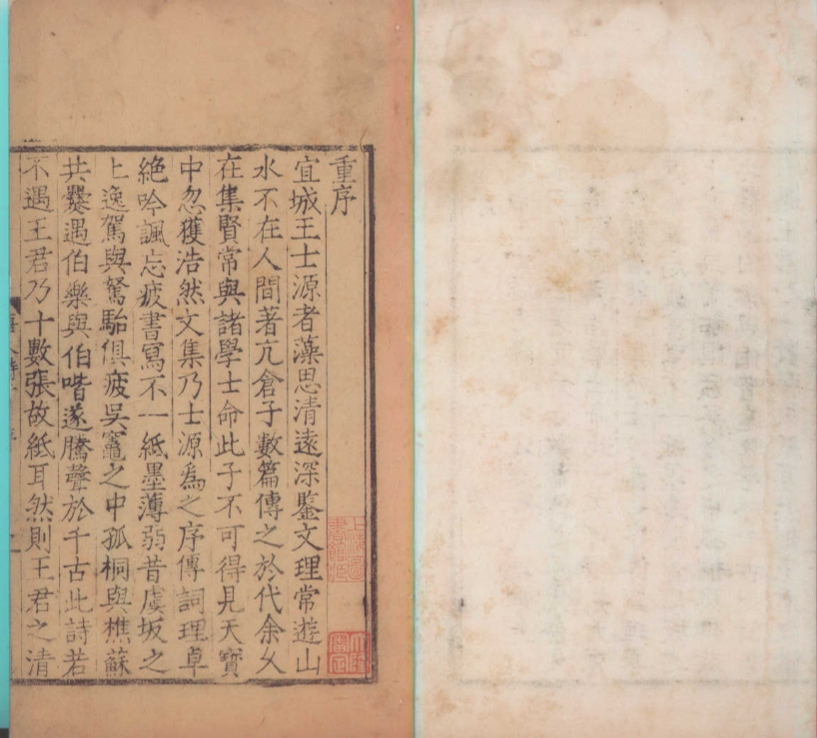 重序
宜城王士源者藻思清遠深鑒文理常遊山
水不在人間著亢倉子數篇傳之於代余久
在集賢常與諸學士命此子不可得見天寶
中忽獲浩然文集乃士源爲之序傳詞理卓
絶吟諷忘疲書寫不一紙墨薄弱昔虞坂之
上逸駕與駑駘俱疲吳竈之中孤桐與樵蘇
共爨遇伯樂與伯喈遂騰聲於千古此詩若
不遇王君乃十數張故紙耳然則王君之清